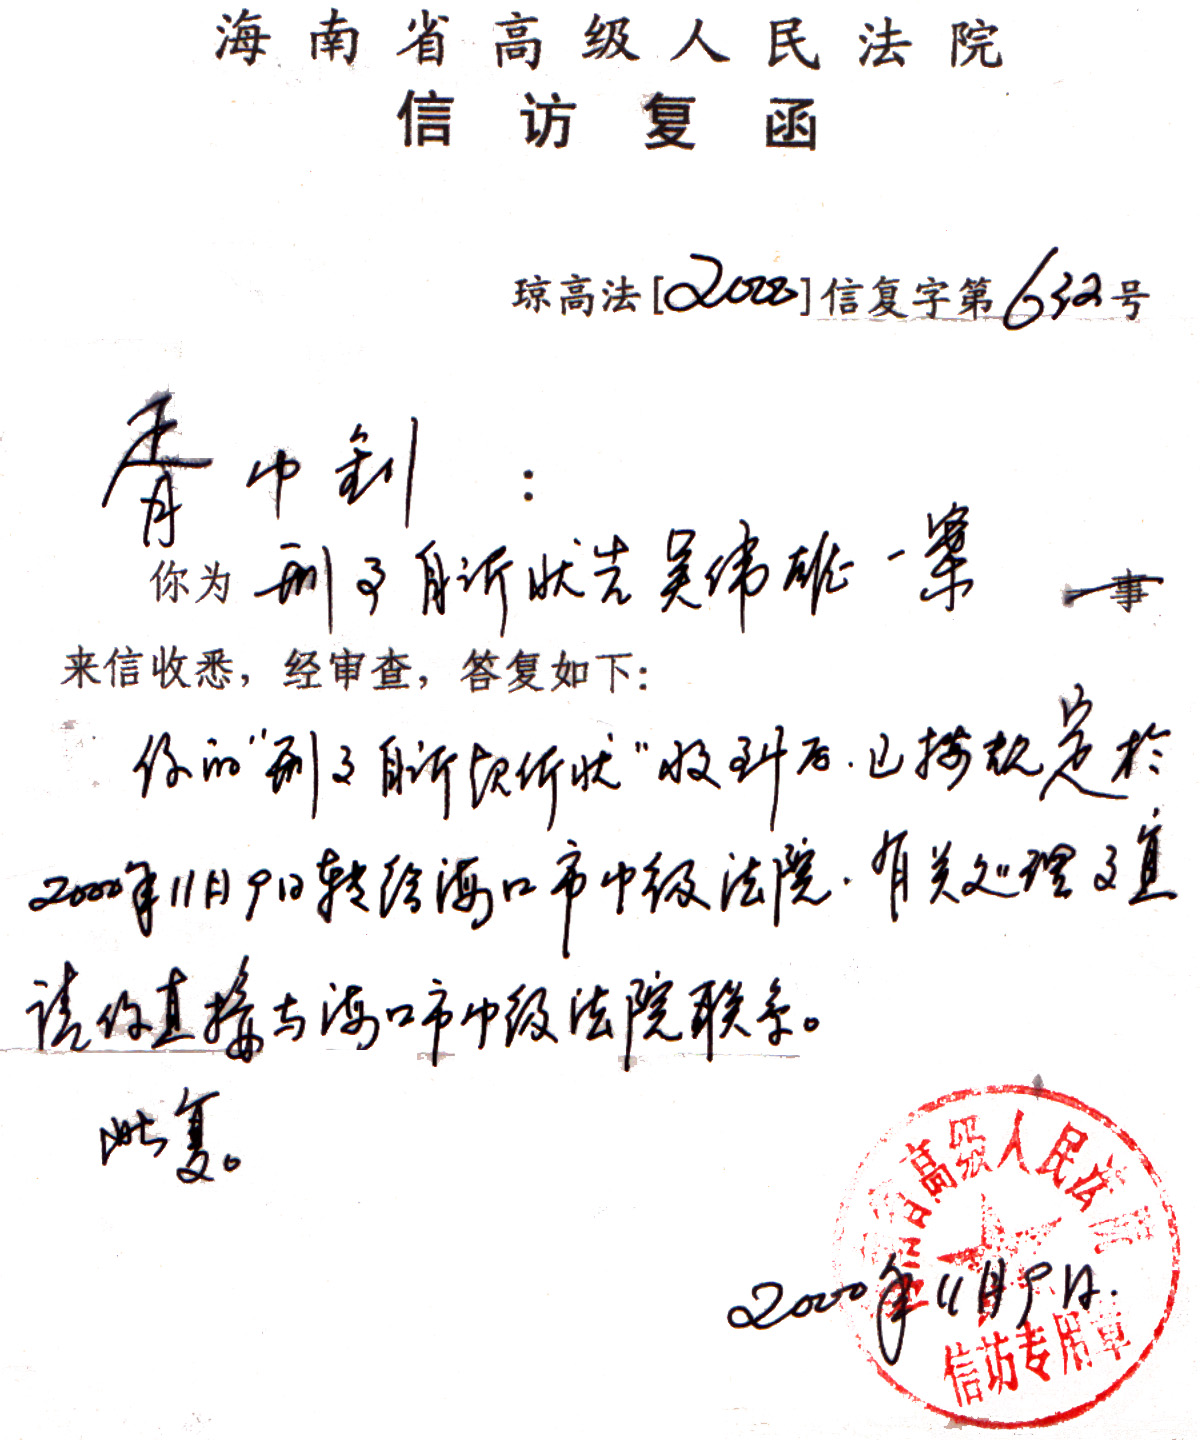 海南省高级人民法院
信访复函
琼高法[2000]信复字第632号
胥中钊：
你为刑事自诉状告吴伟雄一案一事
来信收悉，经审查，答复如下：
你的"刑事自诉状"收到后.已按规定於
2000年11月9日转给海口市中级法院.有关处理事宜
请你直接与海口市中级法院联系。
此复。
高级人民法
2000年11月9日.
信访专用章